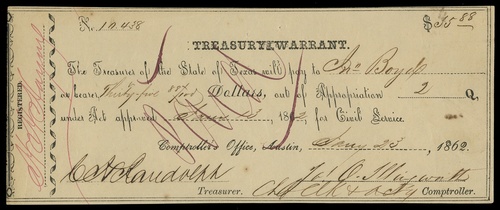 No. 10,438 $35.88
TREASURY WARRANT.
The Treasurer of the State of Texas will pay to Jno Boyd
or bearer Thirty five 88/100 Dollars, out of Appropriation 2 Q,
under Act approved 1862, for Civil Service.
Comptroller's Office, Austin, 23, 1862
C H Randolph
Treasurer. Comptroller.
REGISTERED